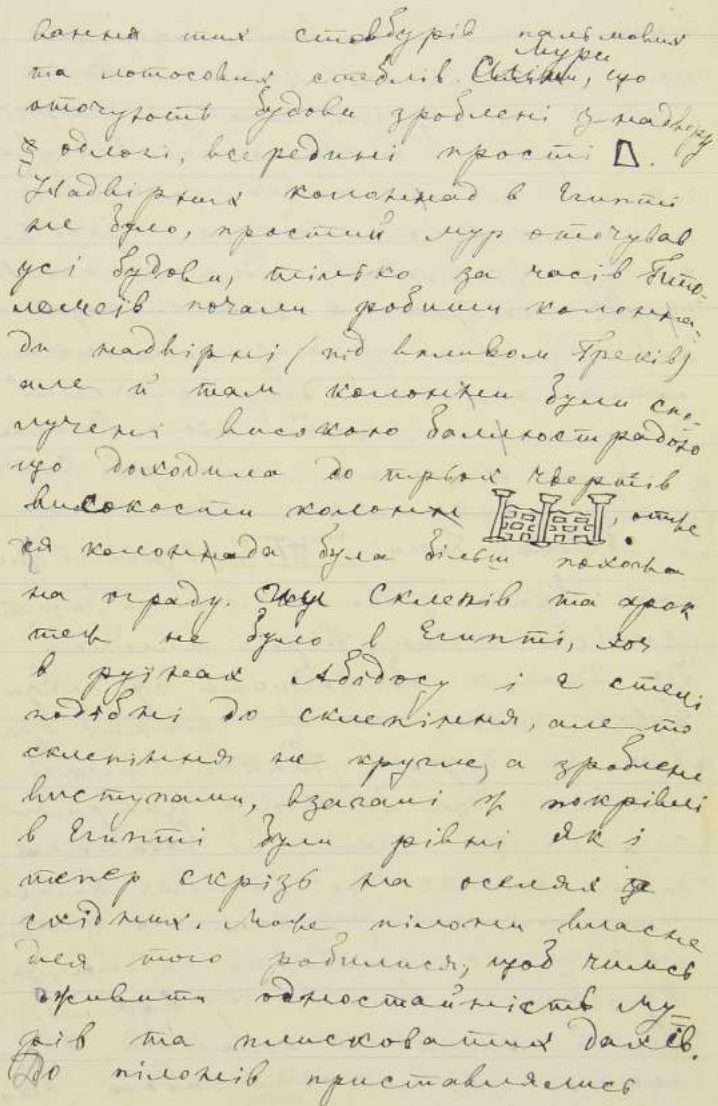 вання тих стовбурів пальмових
та лотосових стеблів. Мури, що
оточують будови зроблені з-надвору
одлогі, всередині прості
Надвірних колонад в Египті
не було, простий мур оточував
усі будови, тілько за часів Пто-
лемеїв почали робити колона-
ди надвірні (під впливом Греків)
але й там колони були спо-
лучені високою балюстрадою
що доходила до трьох чвертів
високости колон, отже
ця колонада була більш похожа
на ограду. Склепів та арок
теж не було в Египті, хоч
в руїнах Абідосу і є стелі
подібні до склепіння, але то
склепіння не кругле, а зроблене
виступами, взагалі ж покрівлі
в Египті були рівні як і
тепер скрізь на оселях
східних. Може пілони власне
для того робилися, щоб чимсь
оживити одностайність му-
рів та плисковатих дахів.
До пілонів приставлялись